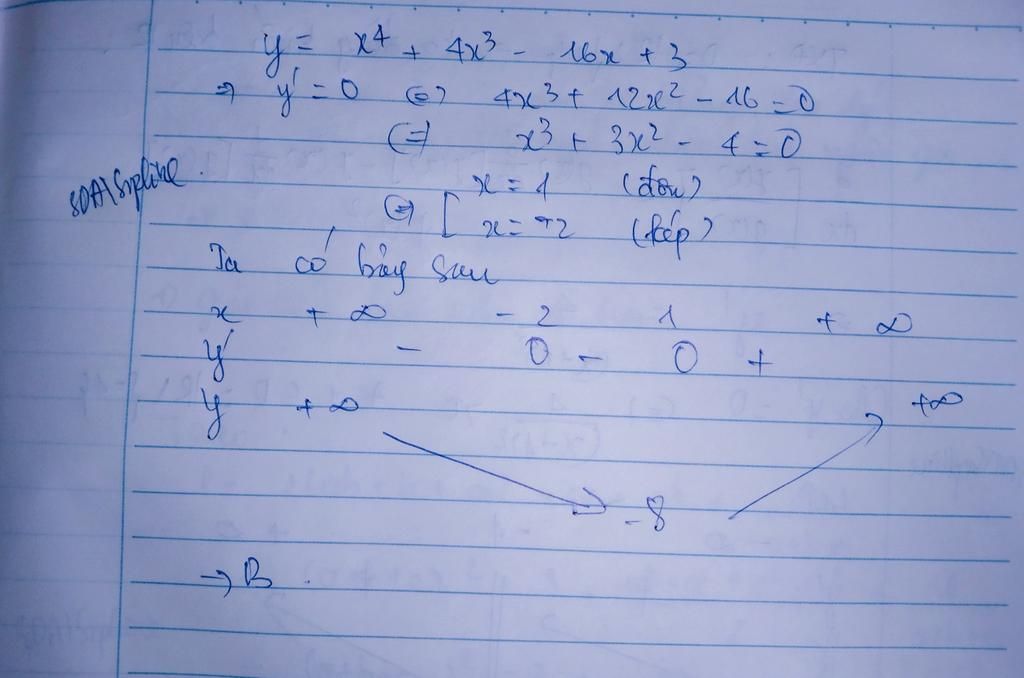 y = x⁴ + 4x³ - 16x + 3
⇒ y' = 0 ⇔ 4x³ + 12x² - 16 = 0
⇔ x³ + 3x² - 4 = 0
⇔ [ x = 1 (đơn)
x = -2 (kép)
Ta có bảng sau
x + ∞ - 2 1 + ∞
y' - 0 - 0 +
y + ∞ +∞
- 8
→ B.